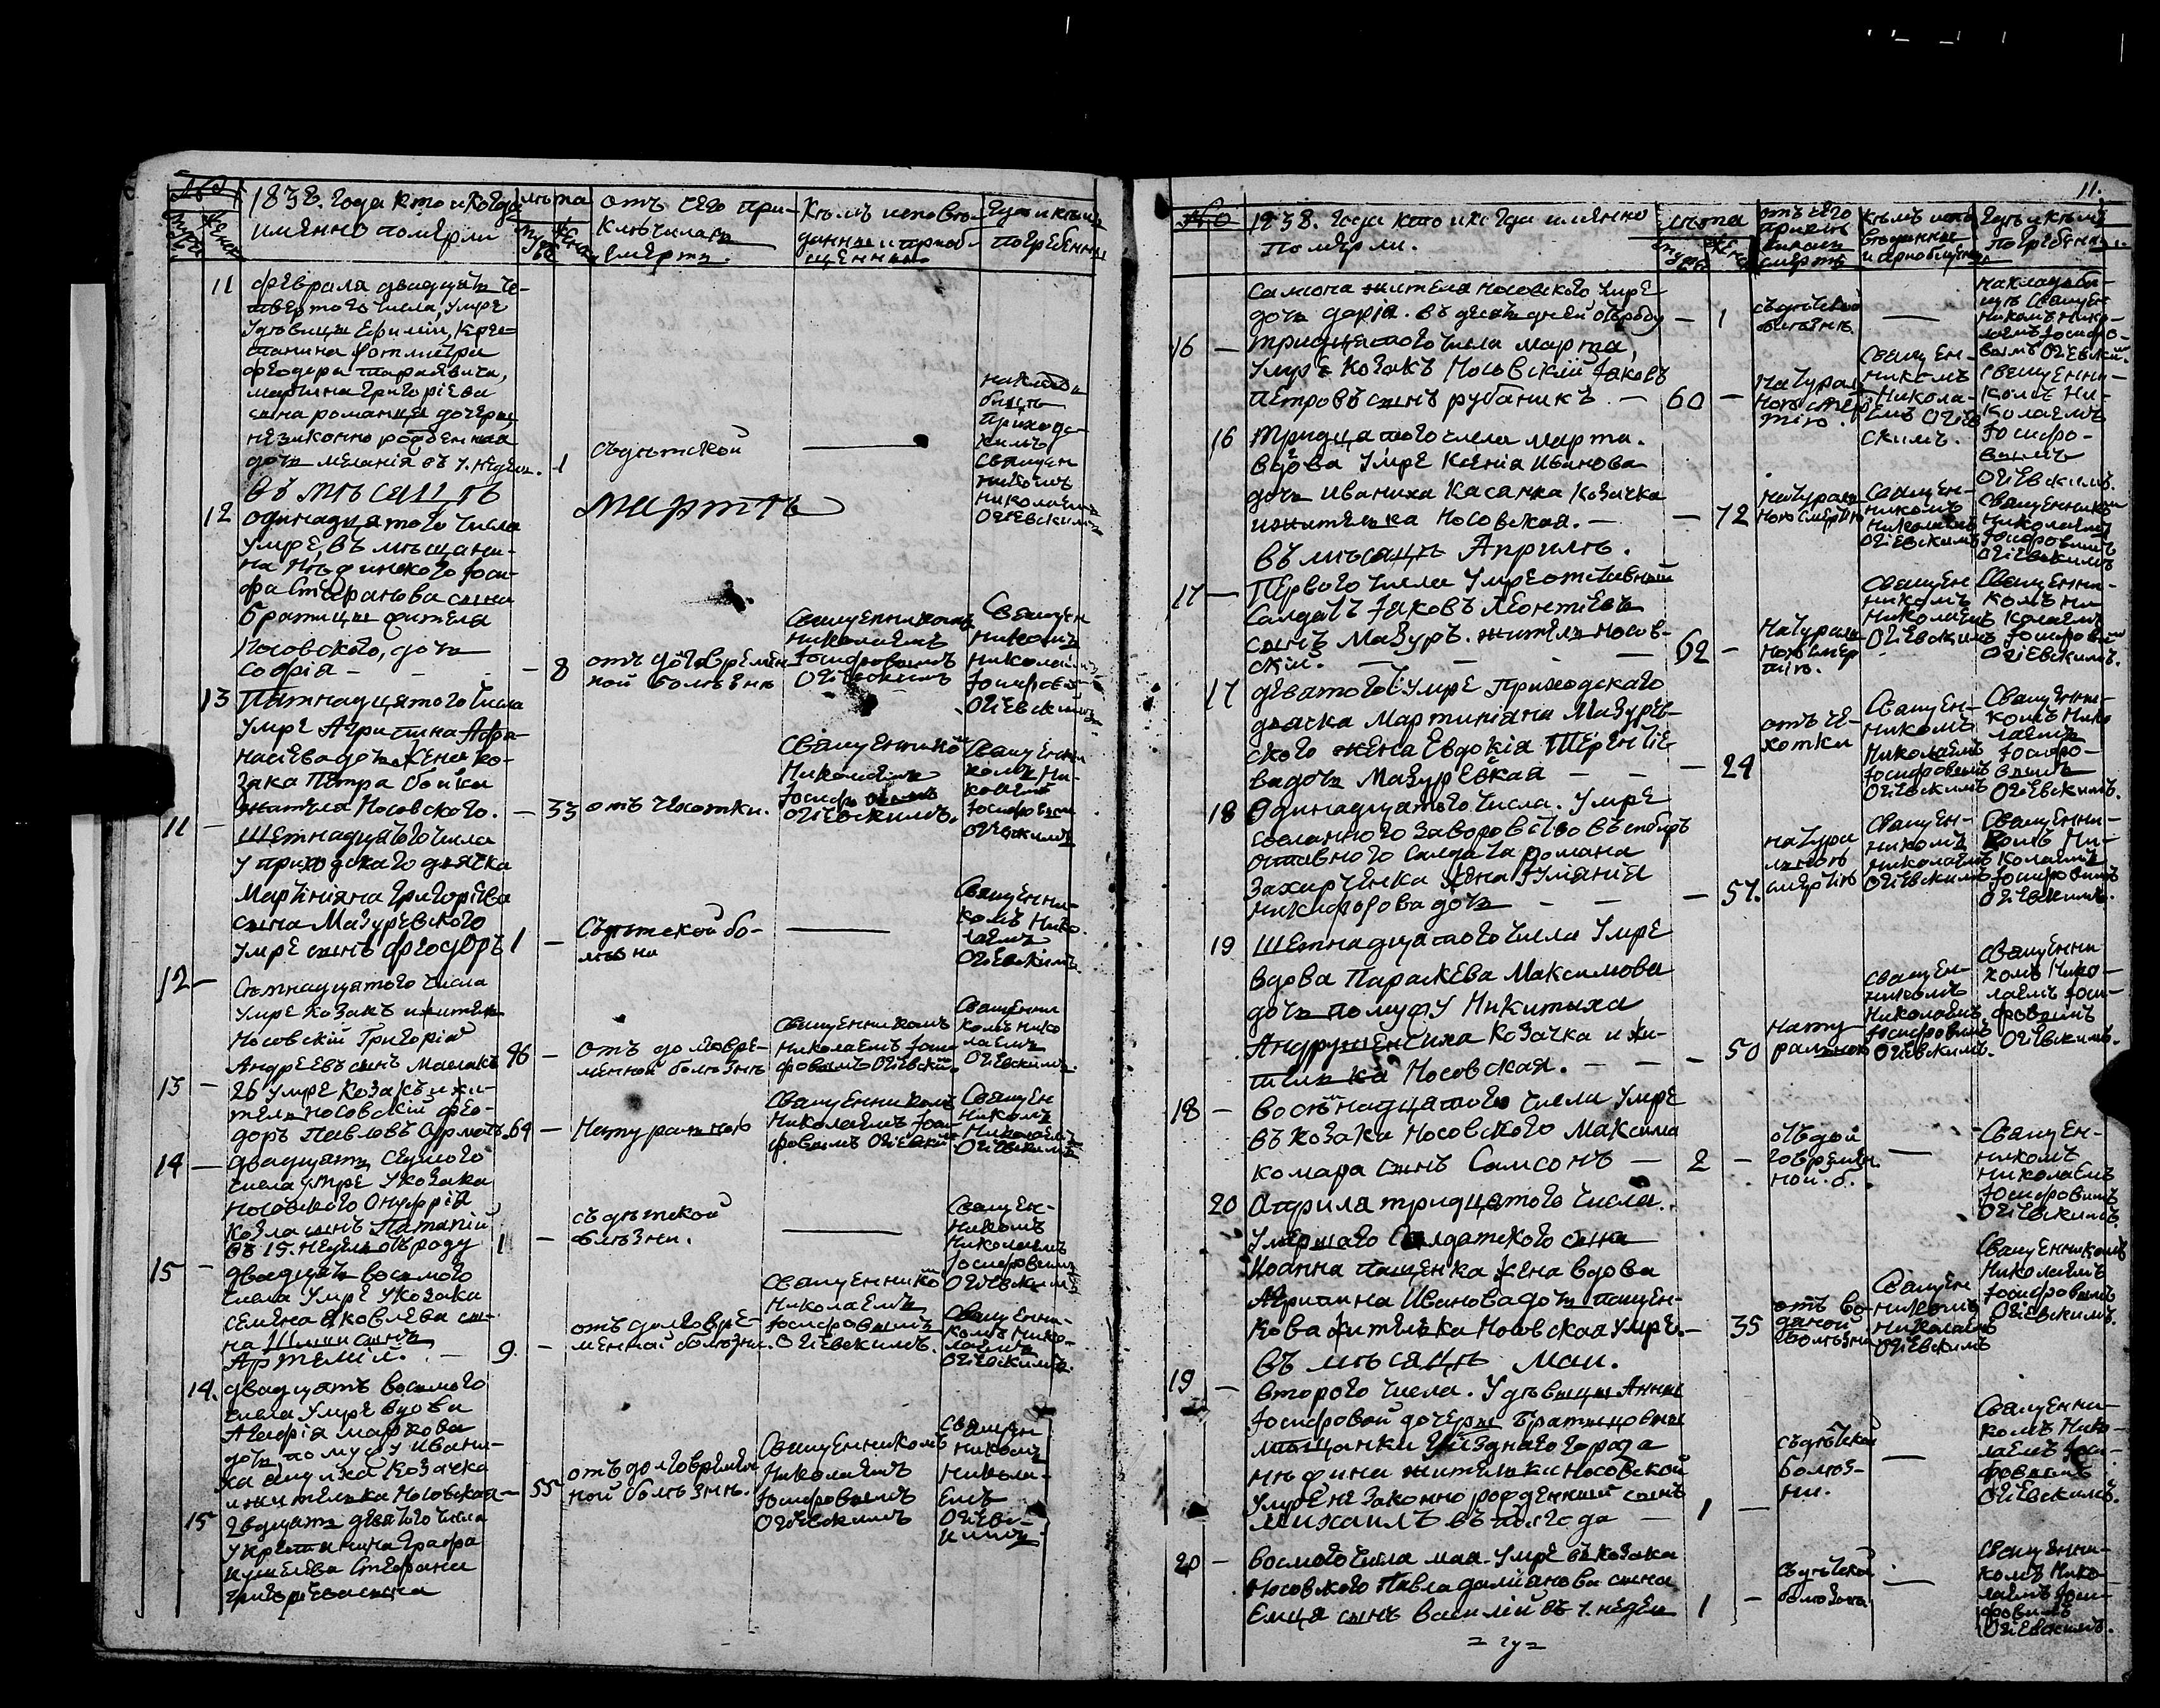 1838. Года кто и когда
именно померли
лѣта
отъ чего при-
ключилась
смерть.
Кѣмъ исповѣ-
данны и приоб-
щенны.
Где и кѣмъ
погребенны
11 февраля двадцать че-
твертого числа, Умре
Удѣвицы Ефимiи, Кре-
федора тарасевича,
мартина григорiева
сына романца дочери,
незаконно рожденная
дочь меланiя въ 1. недел. 1
съдѣтской
—
на кладо
бищѣ
приходс-
кимъ
священ
никомъ
николаемъ
Огiевскимъ
въ мѣсяцѣ мартѣ
12 одинадцятого числа
умре, въ мѣщани-
на Нѣжинского Iоси-
фа Стефанова сына
братицы жителя
Носовского, дочь
софiя - - - - 8
отъ долговремен-
ной болѣзнѣ
Священникомъ
николаемъ
Iосифовымъ
Огiевскимъ
Священ
никомъ
николаемъ
Iосифов
Огiевскимъ
13 Пятнадцятого числа
умре Агрипина Афа-
насiева дочь жена ко-
зака Петра бойка
жителя Носовского. — 33
отъ чахотки.
Священнико
Николаемъ
Iосифовымъ
Огiевскимъ.
Священни
комъ Ни-
колаемъ
Iосифовым
Огiевскимъ
11 — Шетнадцятого числа
у приходского дьячка
Мартинiяна Григорiева
сына Мазуревского
умре сынъ феодоръ 1 —
Съдѣтской бо-
лѣзни
—
Священни-
комъ Нико
лаемъ
Огiевскимъ.
12 — Семнадцятого числа
умре козакъ и житель
Носовскiй Григорiй
Андреевъ сынъ Маслакъ 46 —
отъ долговре-
менной болѣзнѣ
Священникомъ
Николаемъ Iоси
фовымъ Огiевским.
Священни
комъ Нико
лаемъ
Огiевскимъ.
13 — 26 умре Козакъ и жи-
тель носовскiй фео-
доръ Павловъ 64 —
Натуральною
Священникомъ
Николаемъ Iоси-
фовымъ Огiевски
Священ
никомъ
Николаемъ
Огiевскимъ
14 — двадцять седмого
числа умре у козака
носовского Онуфрiя
козла сынъ Патапiй
въ 15. недель отъ роду 1 —
съдѣтской
болѣзни.
—
Священ-
никомъ
Николаемъ
Iосифовымъ
Огiевскимъ
15 — двадцять восмого
числа умре у козака
семена яковлева сы-
на сынъ
Артемiй. — 9. —
отъ долговре-
менной болѣзни.
Священнико
Николаемъ
Iосифовымъ
Огiевскимъ.
Священни-
комъ Нико-
лаемъ
Огiевскимъ.
14. двадцять восмого
числа умре вдова
Агафiя маркова
дочь, по мужу ивани-
ха козачка
и жителька Носовская — 55
отъ долговремен
ной болѣзнѣ.
Священникомъ
Николаемъ
Iосифовымъ
Огiевскимъ
Священ
никомъ
Никола-
емъ
Огiевс-
кимъ
15 двадцять девятого числа
у крестянина графа
кушелева Стефана
григорiева сына
11.
No 1838. года кто и когда именно
померли.
лѣта
отъ чего
приклю
чилась
смерть
кѣмъ испо
вѣданны
и приобщенны
Где и кѣмъ
погребенны
самсона жителя носовского умре
дочь дарiя. въ десять дней отъ роду — 1
съдѣтской
болѣзнѣ.
—
на кладоби-
щѣ Священ-
никомъ Нико-
лаемъ Iосифо-
вымъ Огiевски.
16 — тридцятого числа марта,
умре козакъ Носовскiй Iаковъ
Петровъ сынъ рубаникъ. — 60 —
Натурал
ною смер
тiю.
Священ-
никомъ
Никола-
емъ Огiев
скимъ.
Священни-
комъ Ни-
колаемъ
Iосифо-
вымъ
Огiевскимъ.
16 тридцятого числа марта.
вдова умре Ксенiя Иванова
дочь иваниха Касянка козачка
и жителька Носовская. — — 72
натурал
ною смертiю
Священ-
никомъ
Николаемъ
Огiевскимъ
Священнико
Николаемъ
Iосифовымъ
Огiевскимъ
въ мѣсяцѣ Априлѣ.
17 — Первого числа умре отставный
Салдатъ Iаковъ Леонтiевъ
сынъ Мазуръ. житель носов-
скiй. — — — 62 —
Натурал
ною смер
тiю.
Священ
никомъ
Николаемъ
Огiевскимъ
Священни-
комъ Ни
колаемъ
Iосифовы
Огiевскимъ.
17 девятого умре приходского
дьячка Мартинiяна Мазурев-
ского жена Евдокiя Терентiе
ва дочь Мазуревская — — — 24
отъ че-
хотки
Священ-
никомъ
Николаемъ
Iосифовымъ
Огiевскимъ
Священни-
комъ Нико
лаемъ
Iосифо-
вымъ
Огiевскимъ.
18 Одинадцятого числа. умре
сосланного за воровство въ сибиръ
отставного салдата романа
Захарченка жена
никифорова дочь — — — 57.
натура
льною
смертiю
Священ-
никомъ
Николаемъ
Огiевскимъ
Священни-
комъ Ни-
колаемъ
Iосифовымъ
Огiевскимъ.
19 Шетнадцятого числа умре
вдова Параскева Максимова
дочь по мужу Никитиха
Андрущенчиха козачка и жи-
телька Носовская. — — — 50
нату
ралною
священ-
никомъ
Николаемъ
Iосифовымъ
Огiевскимъ.
Священни
комъ Нико-
лаемъ Iоси-
фовымъ
Огiевскимъ.
18 — восемнадцятого числа умре
въ козака Носовского Максима
комара сынъ Самсонъ — 2 —
отъ дол
говремен.
ной. б.
—
Священ-
никомъ
Николаемъ
Iосифовымъ
Огiевскимъ.
20 Априля тридцятого числа.
Умершаго Салдатского сына
Иоанна пащенка жена вдова
Агрипина Иванова дочь пащен-
кова жителька Носовская умре. — 35
отъ во-
дяной
болѣзни
Священ
никомъ
Николаемъ
Огiевскимъ
Священникомъ
Николаемъ
Iосифовымъ
Огiевскимъ.
въ мѣсяцѣ Маи.
19 — второго числа. У дѣвицы Анны
Iосифовой дочери братицовны
мѣщанки уѣзднаго города
нѣжина жительки носовской
умре незаконно рожденный сынъ
михаилъ въ полгода — 1 —
съдѣтской
болѣз-
ни.
—
Священни-
комъ Нико-
лаемъ Iоси-
фовымъ
Огiевскимъ.
20 — восмого числа мая. умре въ козака
Носовского Павла дамiанова сына
Емця сынъ василiй въ 1. недели 1 —
съдѣтской
болѣзнѣ
—
Священни-
комъ Нико
лаемъ Iоси-
фовымъ
Огiевскимъ.